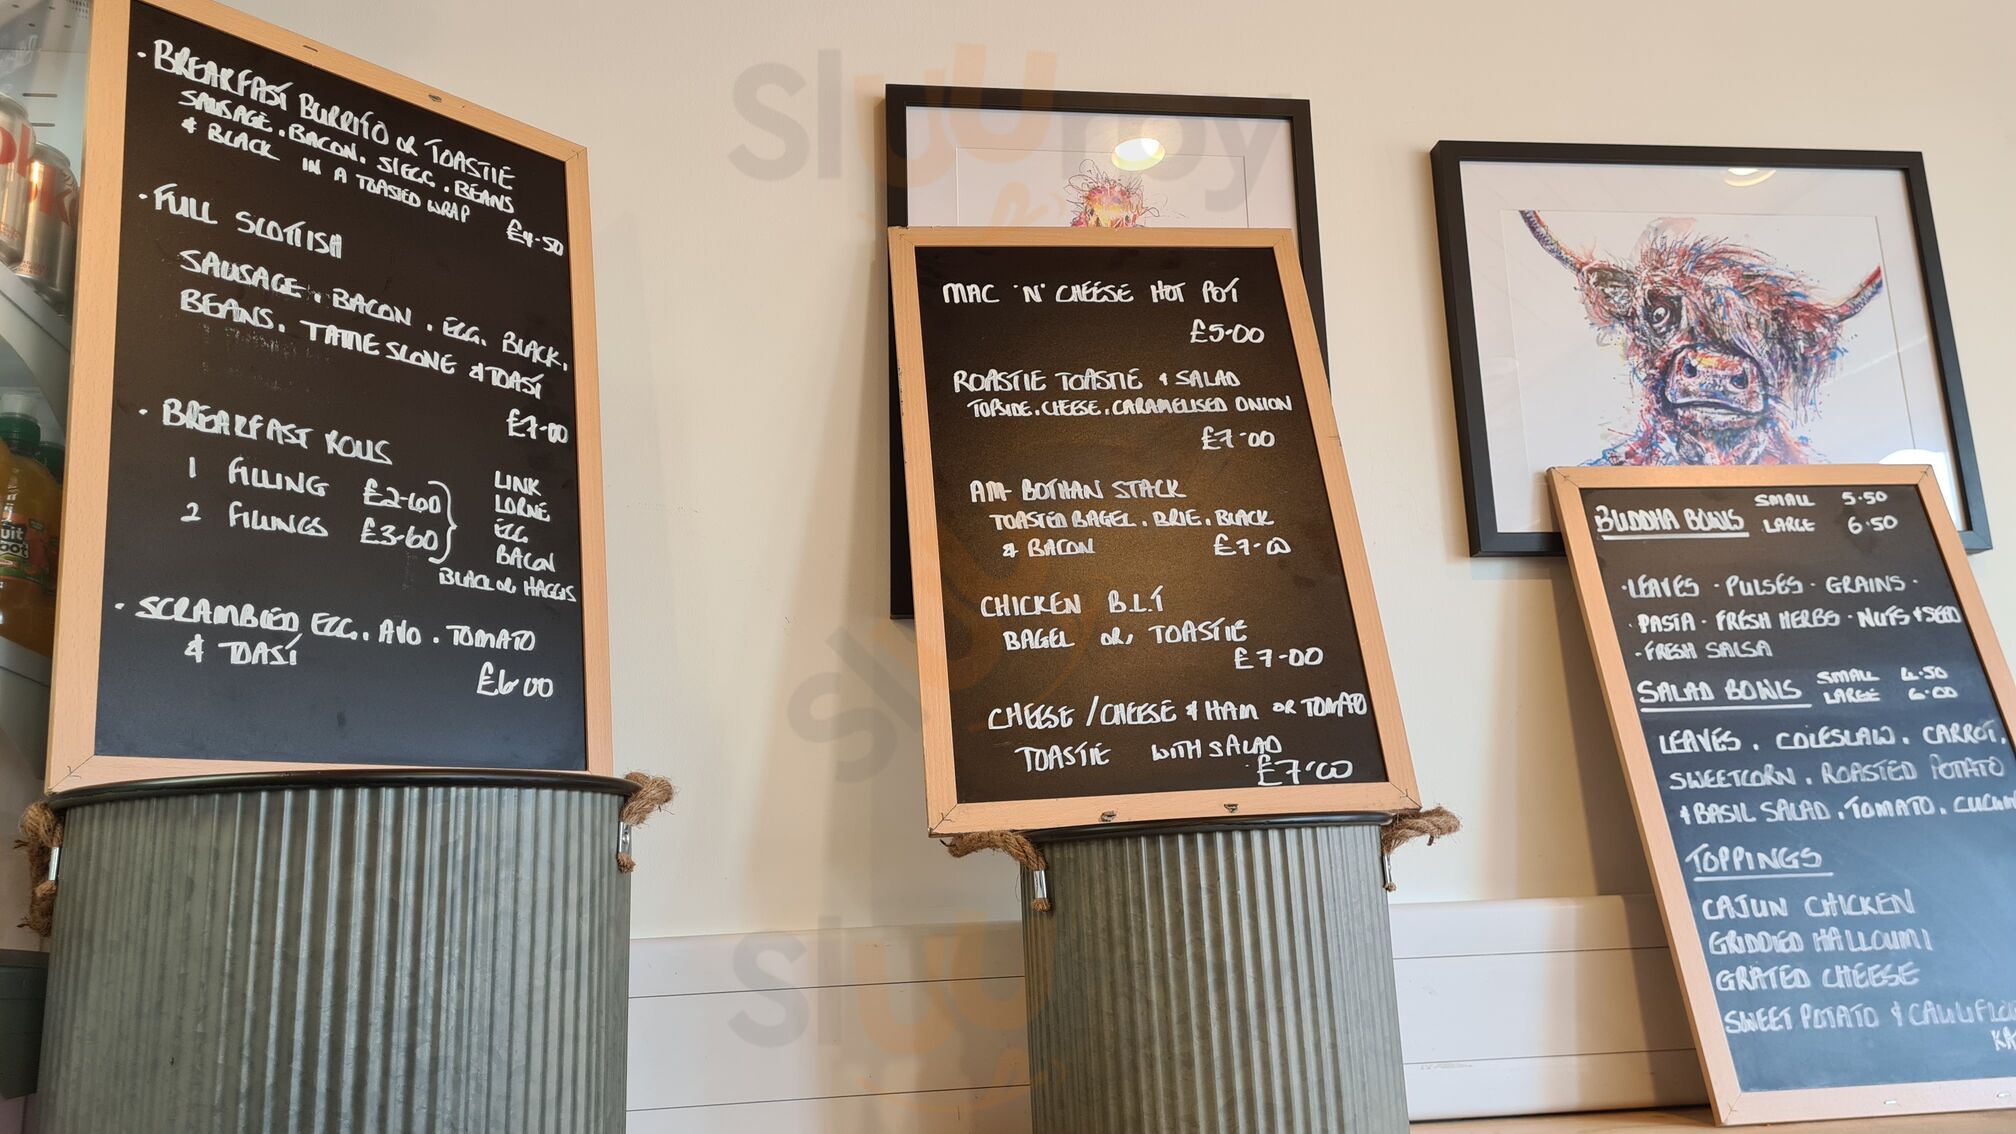 · BREAKFAST BURRITO OR TOASTIE
SAUSAGE . BACON . S/EGG . BEANS
& BLACK IN A TOASTED WRAP
£4.50
· FULL SCOTTISH
SAUSAGE . BACON . EGG . BLACK .
BEANS . TATTIE SCONE & TOAST
£7.00
· BREAKFAST ROLLS
1 FILLING £2.60
2 FILLINGS £3.60
LINK
LORNE
EGG
BACON
BLACK OR HAGGIS
· SCRAMBLED EGG . AVO . TOMATO
& TOAST
£6.00
MAC 'N' CHEESE HOT POT
£5.00
ROASTIE TOASTIE & SALAD
TOPSIDE . CHEESE . CARAMELISED ONION
£7.00
AM BOTHAN STACK
TOASTED BAGEL . BRIE . BLACK
& BACON £7.00
CHICKEN B.L.T
BAGEL OR TOASTIE
£7.00
CHEESE / CHEESE & HAM OR TOMATO
TOASTIE WITH SALAD
£7.00
BUDDHA BOWLS SMALL 5.50
LARGE 6.50
· LEAVES · PULSES · GRAINS ·
· PASTA · FRESH HERBS · NUTS & SEED
· FRESH SALSA
SALAD BOWLS SMALL 4.50
LARGE 6.00
LEAVES . COLESLAW . CARROT .
SWEETCORN . ROASTED POTATO
& BASIL SALAD . TOMATO .
TOPPINGS
CAJUN CHICKEN
GRIDDLED HALLOUMI
GRATED CHEESE
SWEET POTATO &
Sluurpy
Sluurpy
Sluurpy